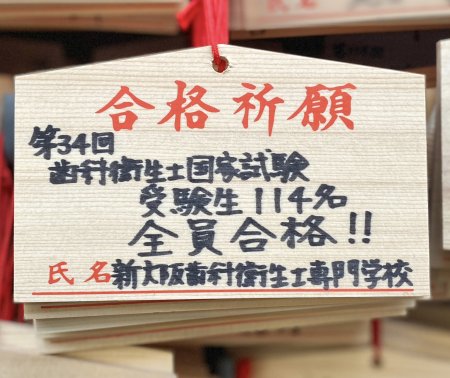 合格祈願
第34回
歯科衛生士国家試験
受験生114名
全員合格!!
氏名 新大阪歯科衛生士専門学校